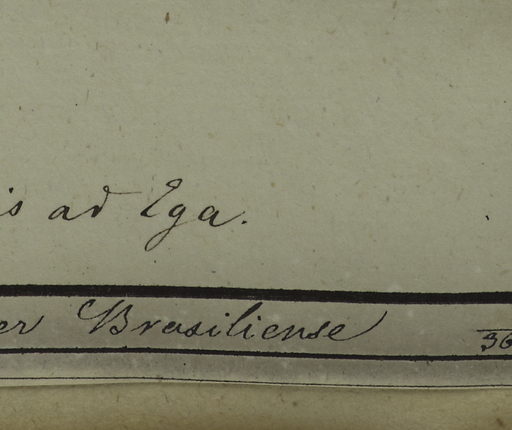 is ad Ega.
er Brasiliense 36